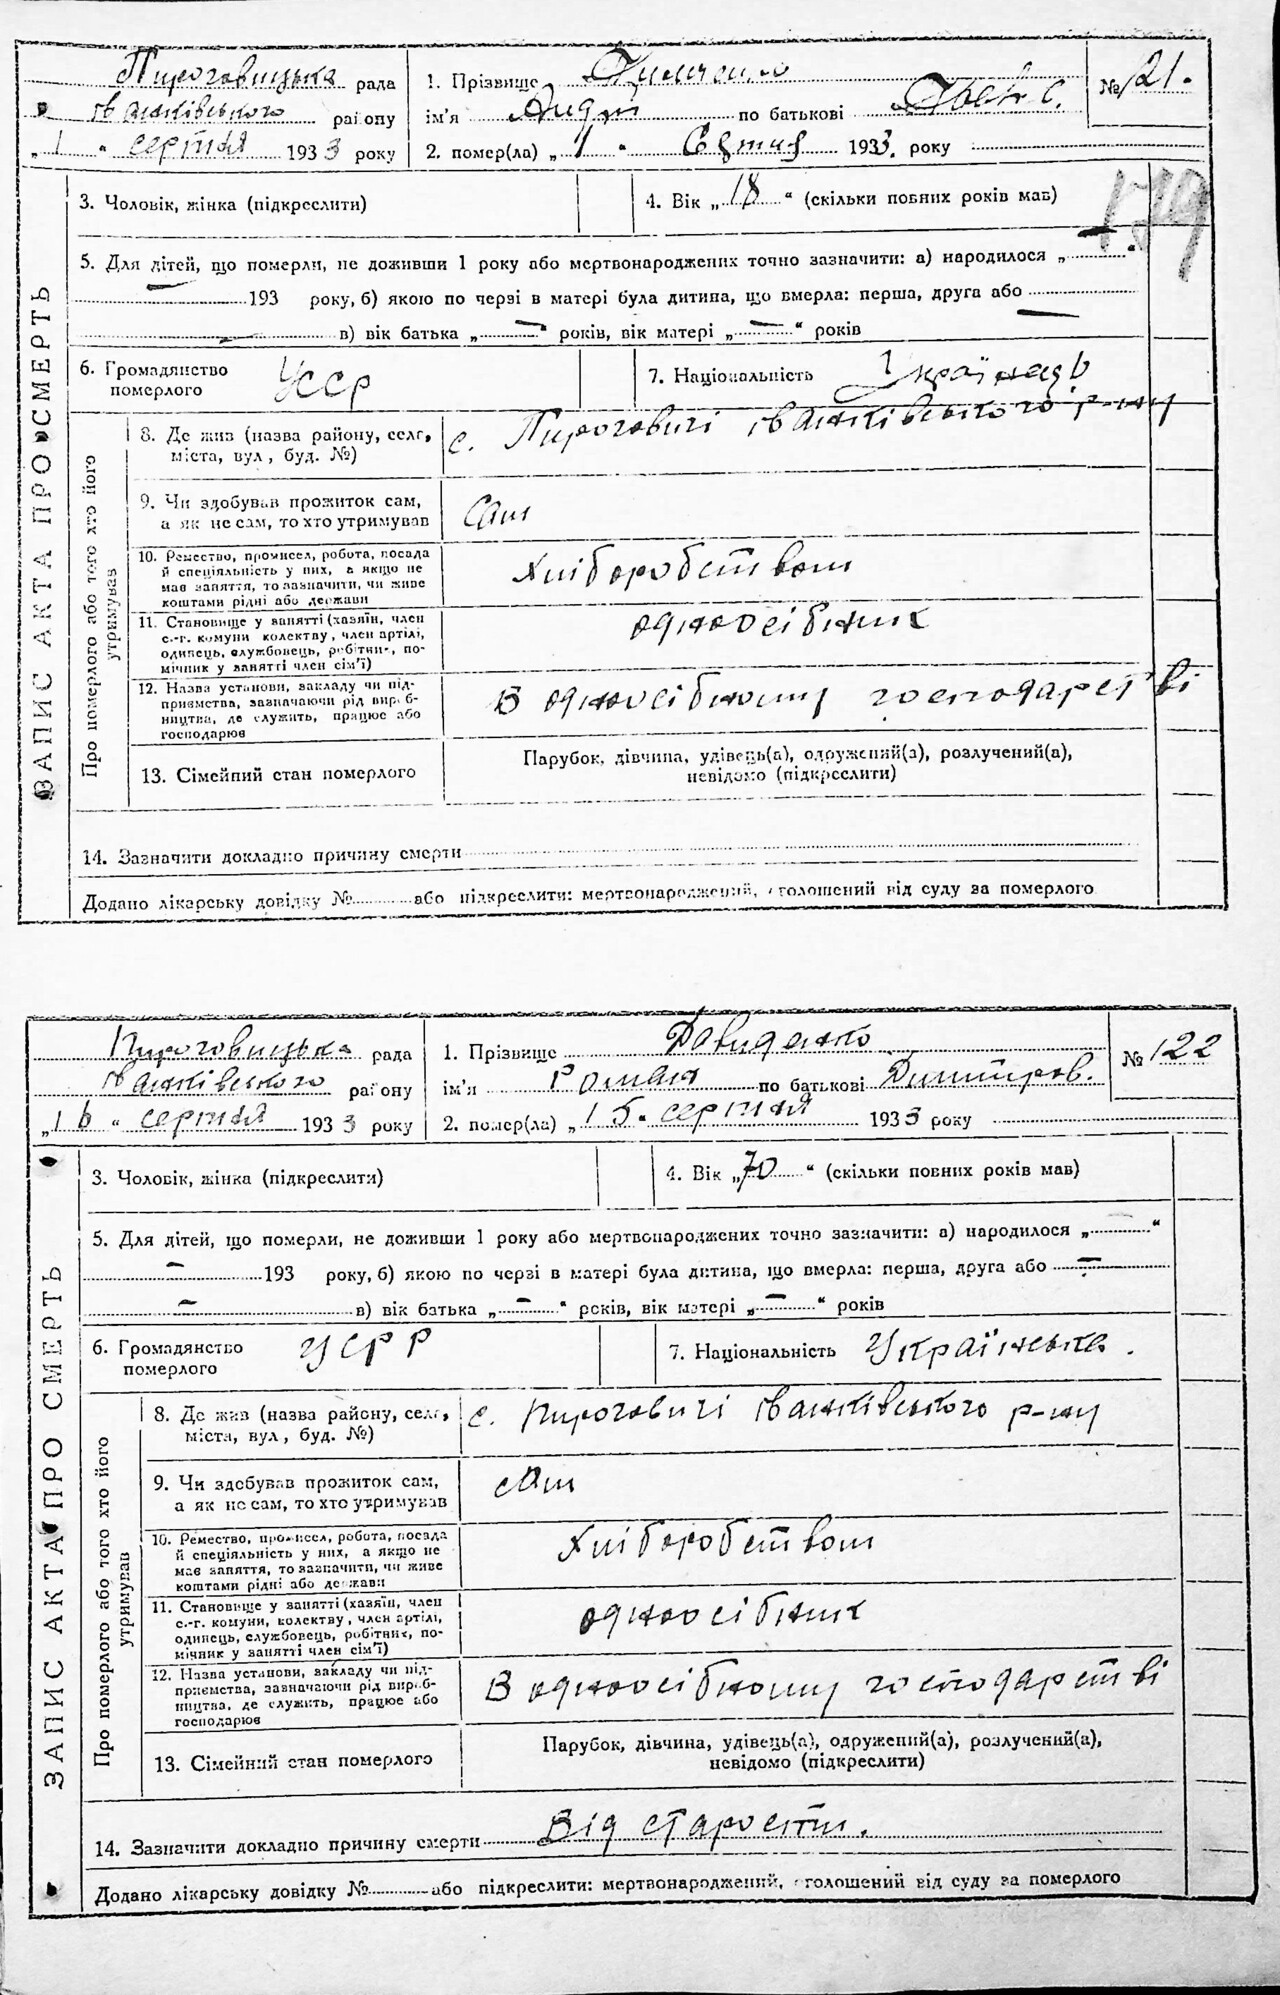 Пироговицька рада
Іванківського району
„1“ серпня 1933 року
1. Прізвище
ім'я Андрій по батькові
2. помер(ла) „1“ Серпня 1933. року
№ 121.
179
ЗАПИС АКТА ПРО СМЕРТЬ
3. Чоловік, жінка (підкреслити)
4. Вік „18“ (скільки повних років мав)
5. Для дітей, що померли, не доживши 1 року або мертвонароджених точно зазначити: а) народилося „—“
— 193 року, б) якою по черзі в матері була дитина, що вмерла: перша, друга або —
— в) вік батька „—“ років, вік матері „—“ років
6. Громадянство
померлого
УССР
7. Національність
Про померлого або того хто його
утримував
8. Де жив (назва району, села,
міста, вул, буд. №)
с. Пироговичі Іванківського р-ну
9. Чи здобував прожиток сам,
а як не сам, то хто утримував
Сам
10. Ремество, промисел, робота, посада
й спеціяльність у них, а якщо не
мав заняття, то зазначити, чи живе
коштами рідні або держави
Хліборобством
11. Становище у занятті (хазяїн, член
с.-г. комуни колективу, член артілі,
одинець, службовець, робітник, по-
мічник у занятті член сім'ї)
одноосібник
12. Назва установи, закладу чи під-
приємства, зазначаючи рід вироб-
ництва, де служить, працює або
господарює
В одноосібному господарстві
13. Сімейний стан померлого
Парубок, дівчина, удівець(а), одружений(а), розлучений(а),
невідомо (підкреслити)
14. Зазначити докладно причину смерти
Додано лікарську довідку № або підкреслити: мертвонароджений, оголошений від суду за померлого
Пироговицька рада
Іванківського району
„16“ серпня 1933 року
1. Прізвище Давиденко
ім'я Роман по батькові Дмитров.
2. помер(ла) „15“ серпня 1933 року
№ 122
ЗАПИС АКТА ПРО СМЕРТЬ
3. Чоловік, жінка (підкреслити)
4. Вік „70“ (скільки повних років мав)
5. Для дітей, що померли, не доживши 1 року або мертвонароджених точно зазначити: а) народилося „—“
— 193 року, б) якою по черзі в матері була дитина, що вмерла: перша, друга або —
— в) вік батька „—“ років, вік матері „—“ років
6. Громадянство
померлого
УСРР
7. Національність Українська.
Про померлого або того хто його
утримував
8. Де жив (назва району, села,
міста, вул, буд. №)
с. Пироговичі Іванківського р-ну
9. Чи здобував прожиток сам,
а як не сам, то хто утримував
сам
10. Ремество, промисел, робота, посада
й спеціяльність у них, а якщо не
має заняття, то зазначити, чи живе
коштами рідні або держави
Хліборобством
11. Становище у занятті (хазяїн, член
с.-г. комуни, колективу, член артілі,
одинець, службовець, робітник, по-
мічник у занятті член сім'ї)
одноосібник
12. Назва установи, закладу чи під-
приємства, зазначаючи рід вироб-
ництва, де служить, працює або
господарює
В одноосібному господарстві
13. Сімейний стан померлого
Парубок, дівчина, удівець(а), одружений(а), розлучений(а),
невідомо (підкреслити)
14. Зазначити докладно причину смерти Від старости.
Додано лікарську довідку № або підкреслити: мертвонароджений, оголошений від суду за померлого